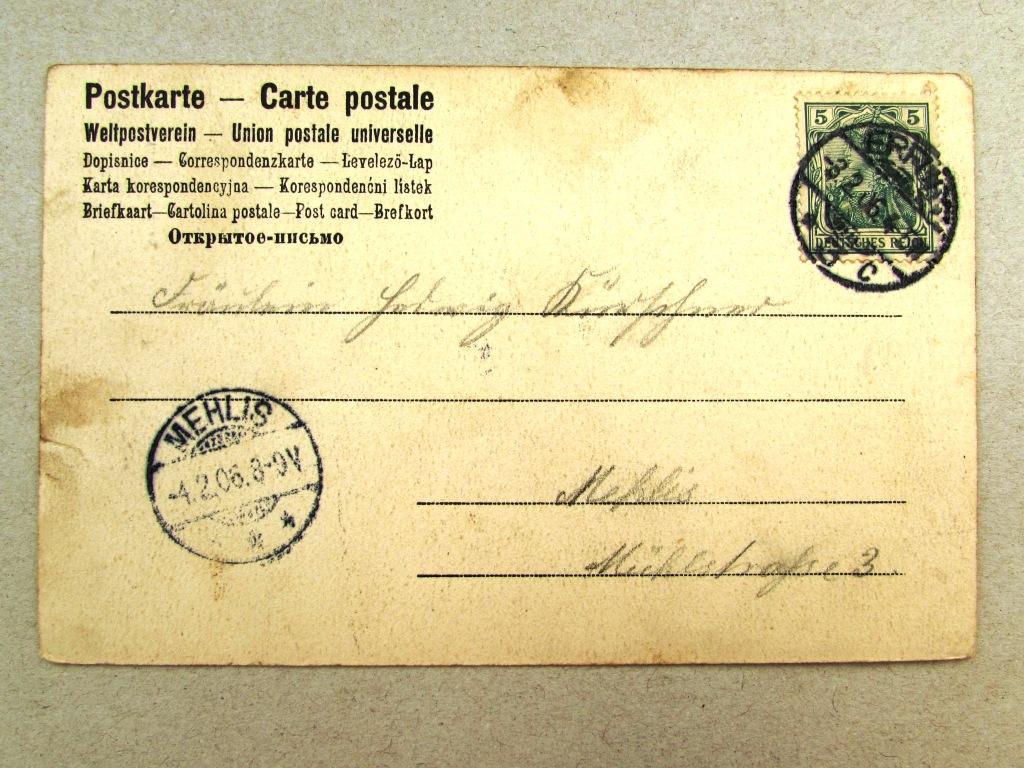 Postkarte — Carte postale
Weltpostverein — Union postale universelle
Dopisnice — Correspondenzkarte — Levelező-Lap
Karta korespondencyjna — Korespondenčni listek
Briefkaart—Cartolina postale—Post card—Brefkort
Открытое-письмо
5 5
DEUTSCHES REICH
C
Fräulein Hedwig Kürschner
MEHLIS
-4.2.06.8-9V
* *
Mehlis
Mühlstraße 3.